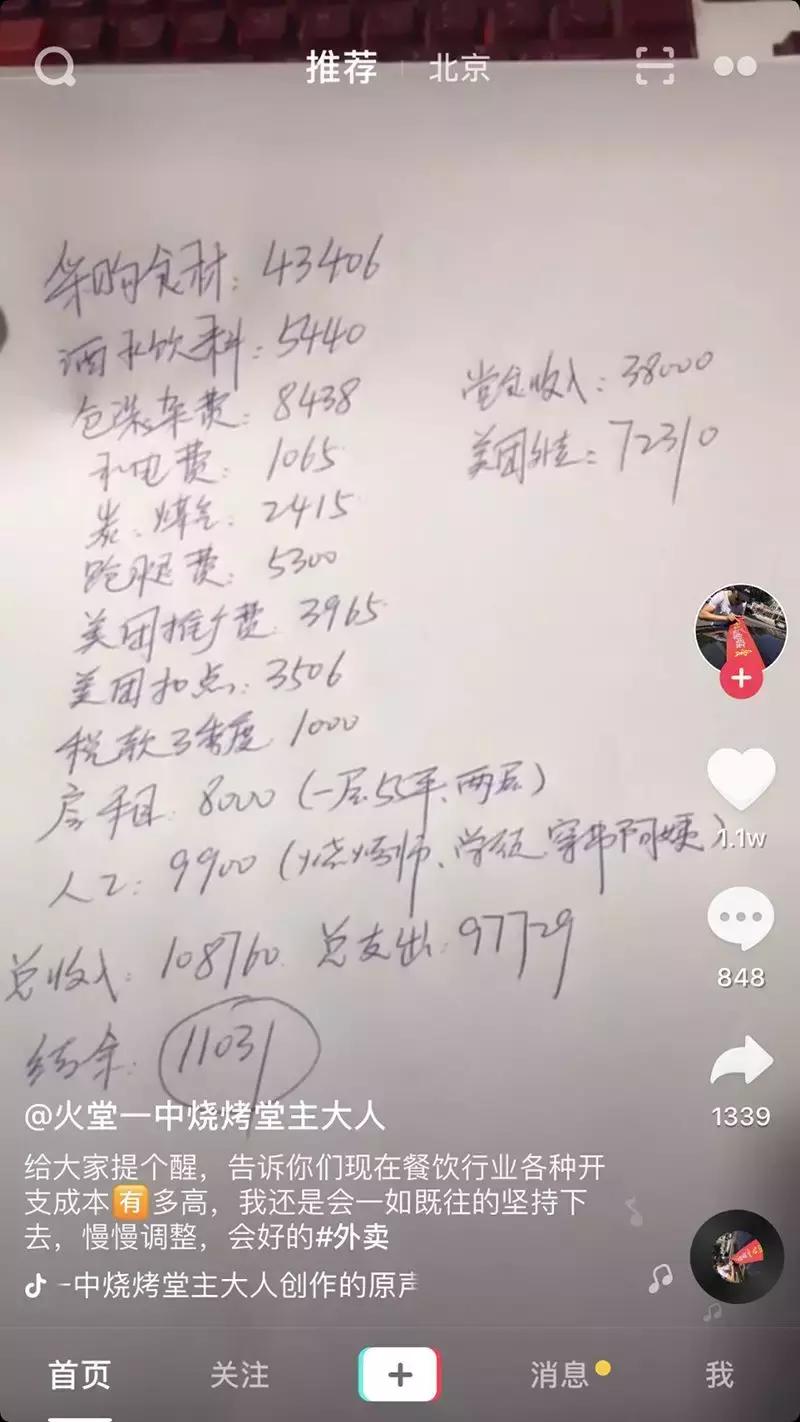 推荐 北京
采购食材：43406
酒水饮料：5440
包装杂费：8438
水电费：1065
炭、煤气：2415
跑腿费：5300
美团推广费：3965
美团扣点：3506
税款 季度 1000
房租：8000（一层55平、两层）
人工：9900（烧烤师、学徒、穿串阿姨）
堂食收入：38000
美团外卖：72310
总收入：108760 总支出：97729
结余：11031
1.1w
848
1339
@火堂一中烧烤堂主大人
给大家提个醒，告诉你们现在餐饮行业各种开
支成本🈶多高，我还是会一如既往的坚持下
去，慢慢调整，会好的#外卖
一中烧烤堂主大人创作的原声
首页 关注 消息 我